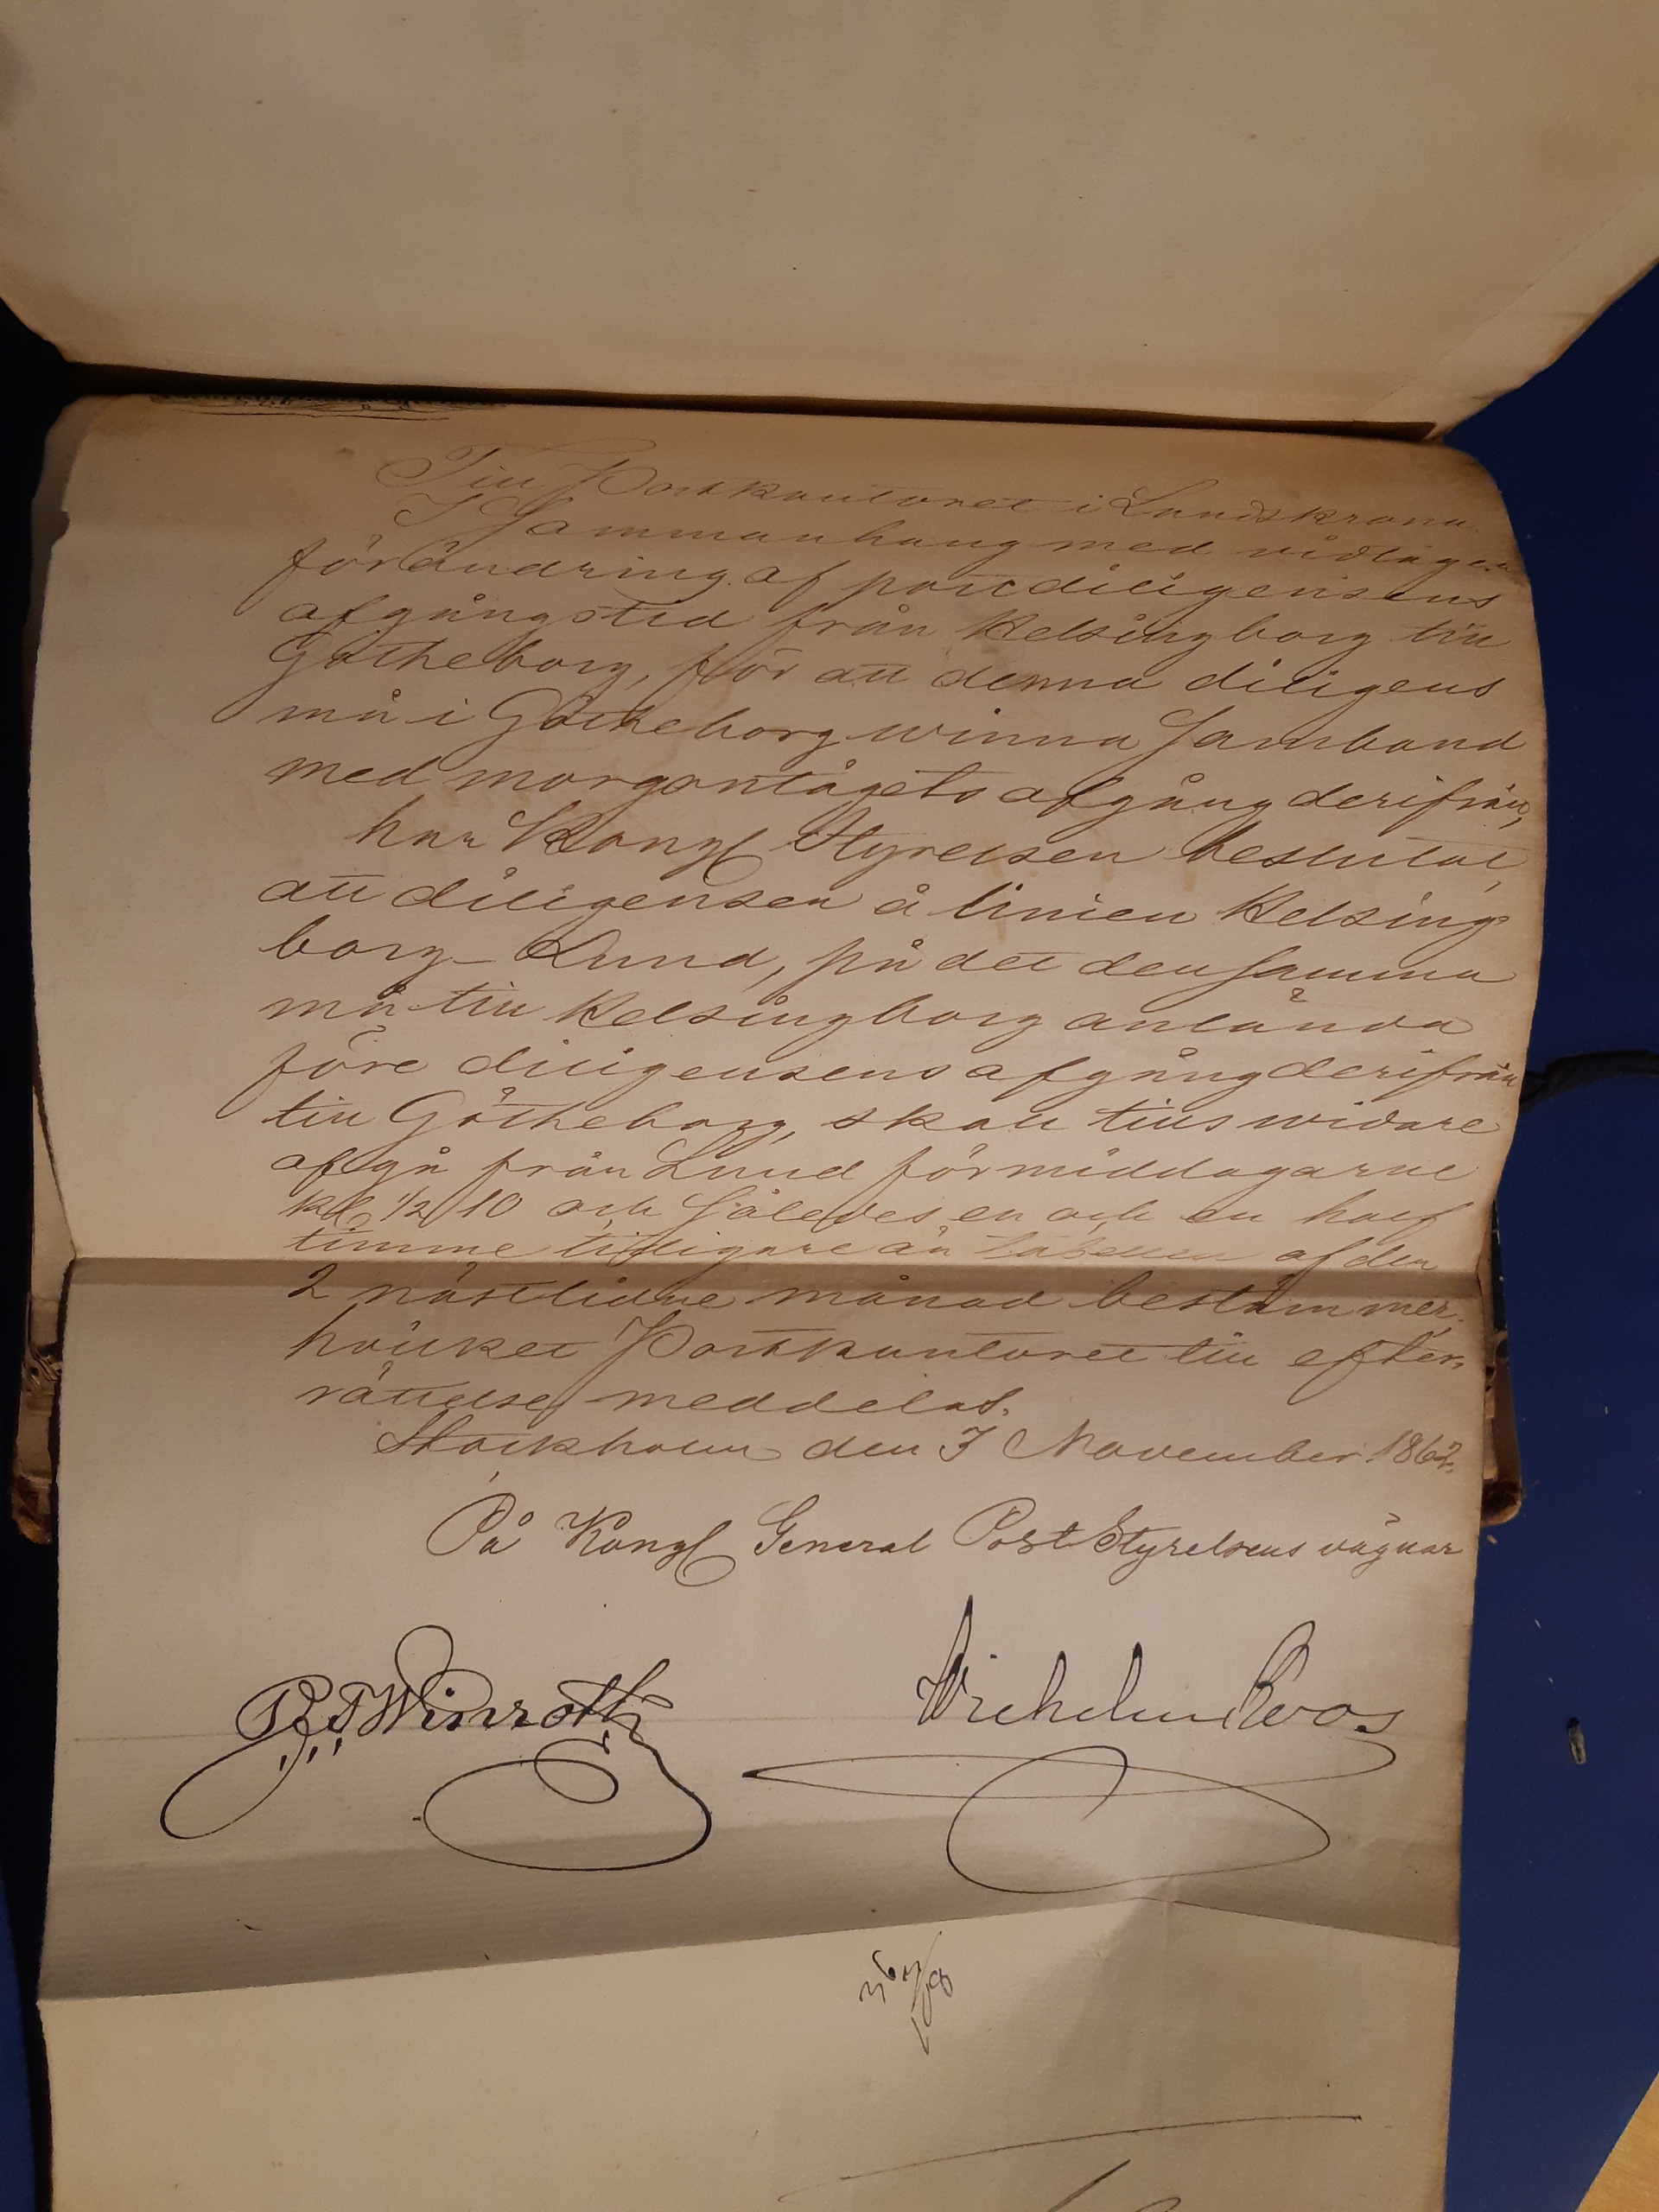 Till Postkontoret i Landskrona.
I Sammanhang med vidtagen
förändring af postdiligensens
afgångstid från Helsingborg till
Götheborg, för att denna diligens
må i Götheborg winna Samband
med morgontågets afgång derifrån,
har Kongl Styrelsen beslutat,
att diligensen å linien Helsing-
borg - Lund, på det densamma
må till Helsingborg anlända
före diligensens afgång derifrån
till Götheborg, skall tills widare
afgå från Lund förmiddagarne
kl. 1/2 10 och Således en och en half
timme tidigare än tabellen af den
2 nästlidne månad bestämmer;
hvilket Postkontoret till efter-
rättelse meddelas.
Stockholm den 3 November 1862.
På Kongl General Post Styrelsens vägnar
Wilhelm Roos
Winroth